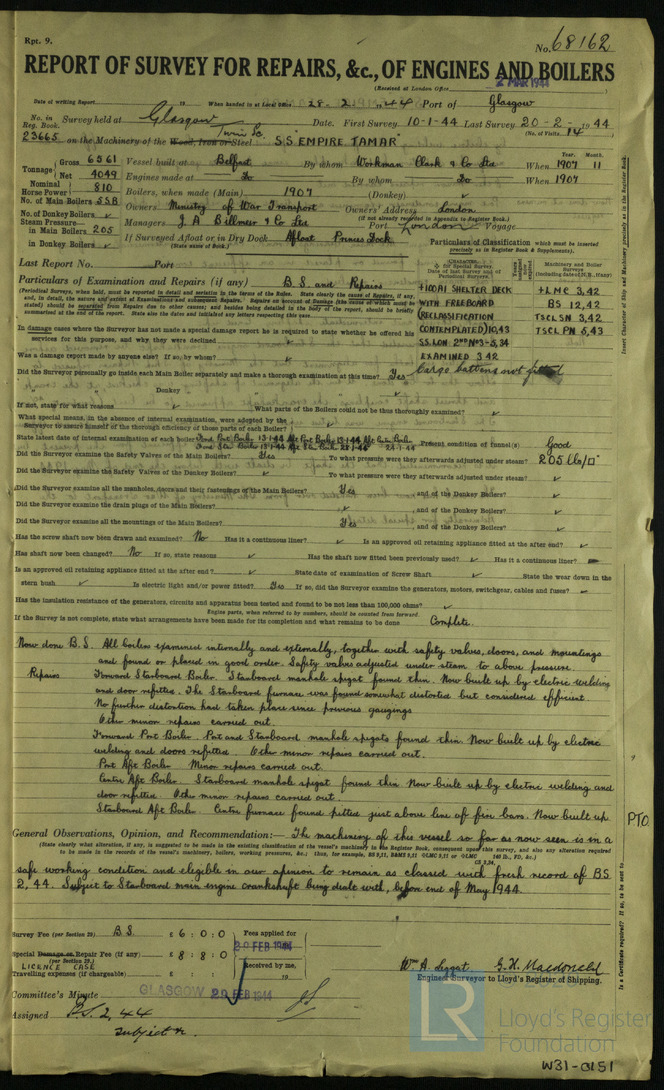 Rpt. 9.
No. 68162
REPORT OF SURVEY FOR REPAIRS, &c., OF ENGINES AND BOILERS
(Received at London Office 2 MAR 1944)
Date of writing Report 19 When handed in at Local Office 28-2-1944 Port of Glasgow
No. in Reg. Book. Survey held at Glasgow Date. First Survey 10-1-44 Last Survey 20-2-1944
(No. of Visits 14)
23665 on the Machinery of the Wood, Iron or Steel Twin Sc SS "EMPIRE TAMAR"
Tonnage Gross 6561 Vessel built at Belfast By whom Workman Clark & Co Ltd When 1907 11
Year. Month.
Net 4049 Engines made at Do By whom Do When 1907
Nominal Horse Power 810 Boilers, when made (Main) 1907 (Donkey)
No. of Main Boilers 5SB Owners Ministry of War Transport Owners' Address London
(if not already recorded in Appendix to Register Book.)
No. of Donkey Boilers Managers J A Billmeir & Co Ltd Port London Voyage
Steam Pressure in Main Boilers 205 If Surveyed Afloat or in Dry Dock Afloat Princes Dock
(State name of Dock.)
in Donkey Boilers
Particulars of Classification which must be inserted precisely as in the Register Book & Supplements).
Last Report No. Port
Particulars of Examination and Repairs (if any) B.S. and Repairs
+100A1 SHELTER DECK +LMC 3,42
WITH FREEBOARD BS 12,42
(RECLASSIFICATION TSCLSN 3,42
CONTEMPLATED) 10,43 TSCL PN 5,43
SS.LON. 2ND No3-5,34
EXAMINED 3.42
Cargo battens not fitted
In damage cases where the Surveyor has not made a special damage report he is required to state whether he offered his
services for this purpose, and why they were declined
Was a damage report made by anyone else? If so, by whom?
Did the Surveyor personally go inside each Main Boiler separately and make a thorough examination at this time? Yes
" " " Donkey " " "
If not, state for what reasons What parts of the Boilers could not be thus thoroughly examined?
What special means, in the absence of internal examination, were adopted by the
Surveyor to assure himself of the thorough efficiency of those parts of each Boiler?
State latest date of internal examination of each boiler Present condition of funnel(s) Good
Did the Surveyor examine the Safety Valves of the Main Boilers? Yes To what pressure were they afterwards adjusted under steam? 205 lbs/□"
Did the Surveyor examine the Safety Valves of the Donkey Boilers? To what pressure were they afterwards adjusted under steam?
Did the Surveyor examine all the manholes, doors and their fastenings of the Main Boilers? Yes , and of the Donkey Boilers?
Did the Surveyor examine the drain plugs of the Main Boilers? , and of the Donkey Boilers?
Did the Surveyor examine all the mountings of the Main Boilers? Yes , and of the Donkey Boilers?
Has the screw shaft now been drawn and examined? No Has it a continuous liner? Is an approved oil retaining appliance fitted at the after end?
Has shaft now been changed? No If so, state reasons Has the shaft now fitted been previously used? Has it a continuous liner?
Is an approved oil retaining appliance fitted at the after end? State date of examination of Screw Shaft State the wear down in the
stern bush Is electric light and/or power fitted? Yes If so, did the Surveyor examine the generators, motors, switchgear, cables and fuses?
Has the insulation resistance of the generators, circuits and apparatus been tested and found to be not less than 100,000 ohms?
Engine parts, when referred to by numbers, should be counted from forward.
If the Survey is not complete, state what arrangements have been made for its completion and what remains to be done Complete.
Now done B.S. All boilers examined internally and externally, together with safety valves, doors, and mountings
and found or placed in good order. Safety valves adjusted under steam to above pressure.
Repairs Forward Starboard Boiler. Starboard manhole spigot found thin. Now built up by electric welding
and door refitted. The Starboard furnace was found somewhat distorted but considered efficient
No further distortion had taken place since previous gaugings
Other minor repairs carried out.
Forward Port Boiler. Port and Starboard manhole spigots found thin. Now built up by electric
welding and doors refitted. Other minor repairs carried out.
Port Aft Boiler Minor repairs carried out.
Centre Aft Boiler. Starboard manhole spigot found thin Now built up by electric welding and
door refitted. Other minor repairs carried out.
Starboard Aft Boiler. Centre furnace found pitted just above line of fire bars. Now built up
PTO
General Observations, Opinion, and Recommendation:— The machinery of this vessel so far as now seen is in a
(State clearly what alteration, if any, is suggested to be made in the existing classification of the vessel's machinery in the Register Book, consequent upon this survey, and also any alteration required
to be made in the records of the vessel's machinery, boilers, working pressures, &c.; thus, for example,
safe working condition and eligible in our opinion to remain as classed with fresh record of BS
2,44. Subject to Starboard main engine crankshaft being dealt with, before end of May 1944.
Survey Fee (per Section 29) B.S. £ 6 : 0 : 0 Fees applied for
29 FEB 1944
Special Damage or Repair Fee (if any) £ 8 : 8 : 0
(per Section 29.)
LICENCE CASE
Received by me,
19
Travelling expenses (if chargeable) £ : :
Wm A. Leggat G. H. Macdonald
Engineer Surveyor to Lloyd's Register of Shipping.
Committee's Minute GLASGOW 29 FEB 1944
Assigned B.S. 2,44
subject &c.
Insert Character of Ship and Machinery precisely as in the Register Book.
Is a Certificate required? If so, to be sent to
LR
Lloyd's Register
Foundation
W31-0151